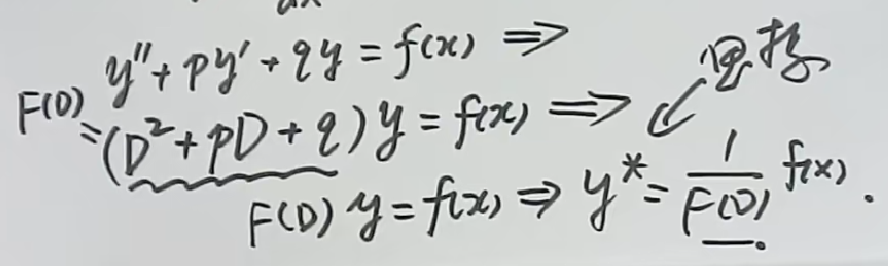 y''+py'+qy=f(x) ⇒
F(D)=(D²+pD+q)y=f(x) ⇒
F(D)y=f(x) ⇒ y*=1/F(D) f(x).